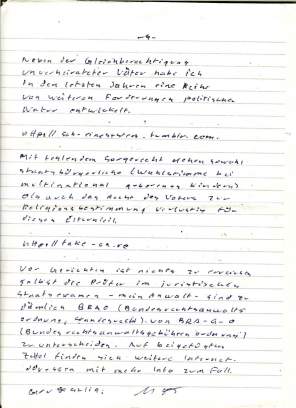 -4-
Neben der Gleichberechtigung
unverheirateter Väter habe ich
in den letzten Jahren eine Reihe
von weiteren Forderungen politischer
Natur entwickelt.
tumblr.com.
Mit fehlendem Sorgerecht gehen sowohl
staatsbürgerliche (Wahlstimme bei
multinational geborenen Kindern)
als auch das Recht des Vaters zur
Religionsbestimmung für
diesen Elternteil.
Vor Gerichten ist nichts zu erreichen
selbst die Prüfer im juristischen
Staatsexamen - mein Anwalt - sind zu
dämlich BRAO (Bundesrechtsanwalts
ordnung, Standesrecht) von BRA-G-O
(Bundesrechtsanwaltsgebühren ordnung)
zu unterscheiden. Auf beigefügtem
Zettel finden sich weitere Internet-
adressen mit mehr Info zum Fall.